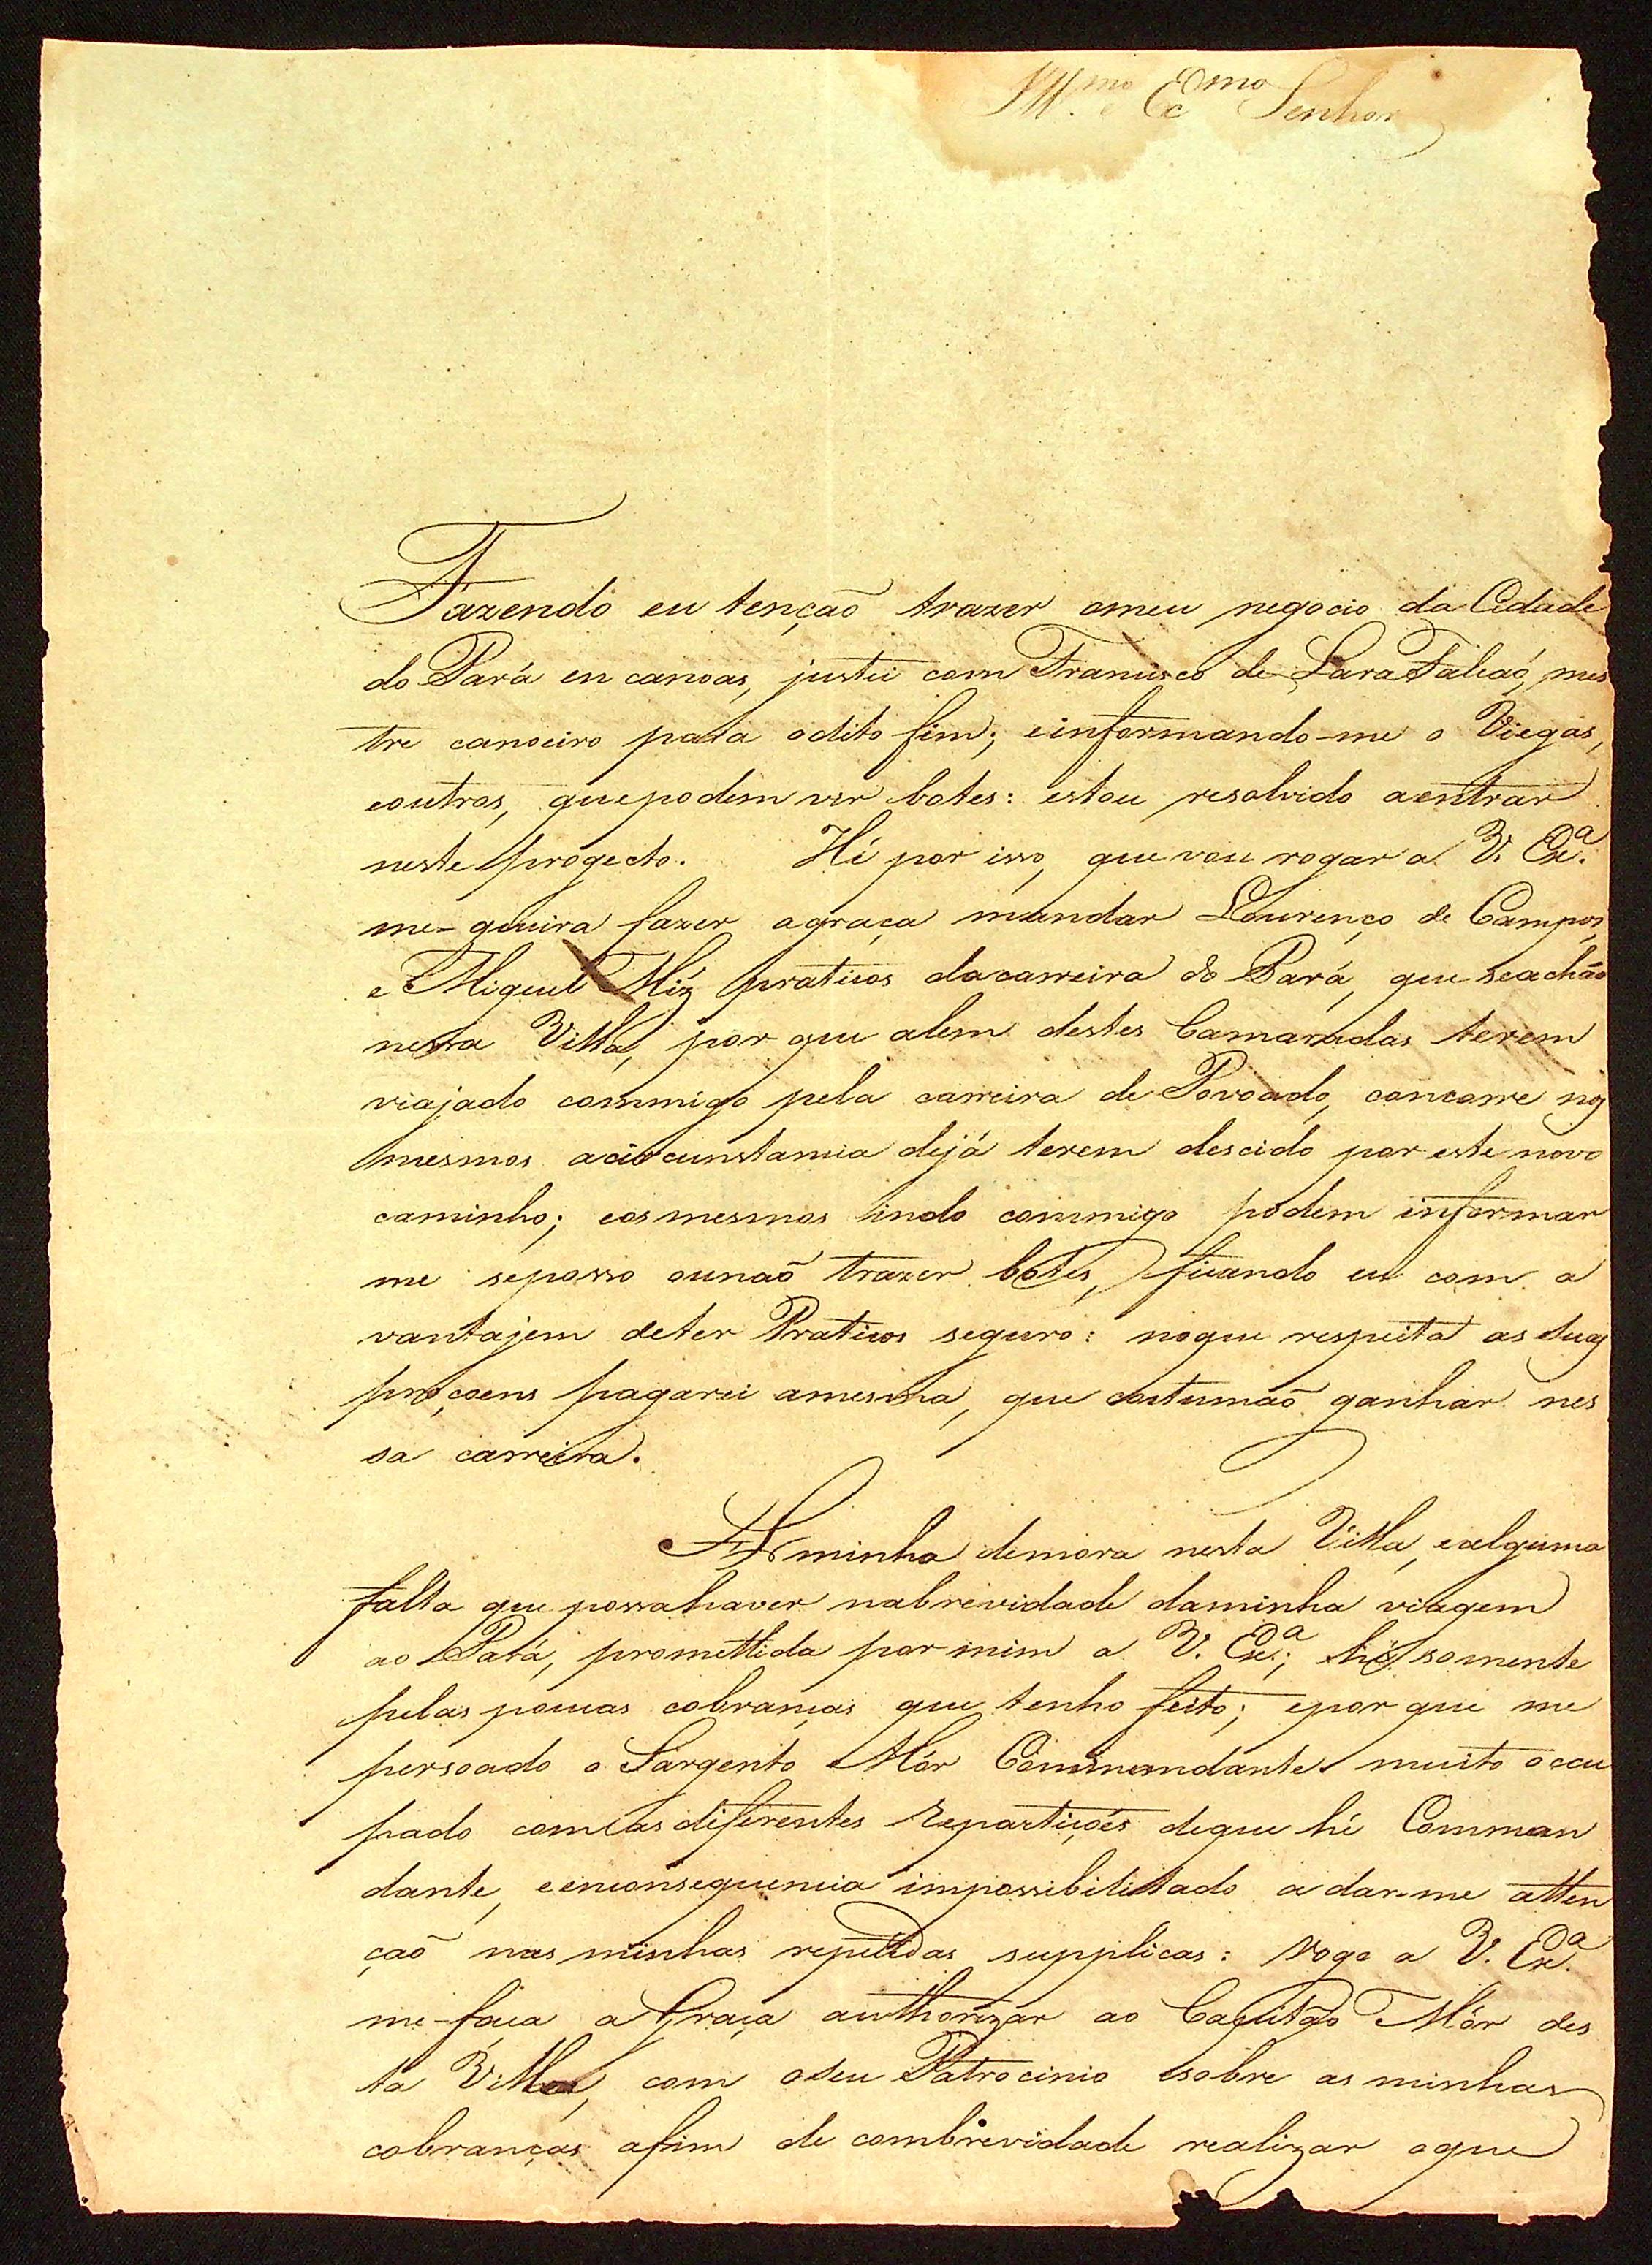 Ill.mo e Ex.mo Senhor
Fazendo eu tençaõ trazer omeu negocio da Cidade
do Pará en canoas, justei com Francisco de Lara Falcaõ, mes
tre canoeiro para odito fim; einformando-me o Viegas,
eoutros, quepodem vir botes: estou resolvido aentrar
neste progecto. Hé por isso, que vou rogar a V. Ex.a
me-queira fazer agraça mandar Lourenço de Campos,
e Miguel Miz praticos dacarreira do Pará, que seachão
nessa Villa, por que alem destes Camaradas terem
viajado commigo pela carreira de Povoado, concorre nos
mesmos acircunstancia dejá terem descido por este novo
caminho; eosmesmos indo commigo podem informar
me seposso ounaõ trazer botes, ficando eu com a
vantajem deter Praticos seguro: noque respeita as suas
proçoens pagarei amesma, que costumaõ ganhar nes
sa carreira.
A minha demora nesta Villa, ealguma
falta que possahaver nabrevidade daminha viagem
ao Pará, promettida por mim a V. Ex.a; hé somente
pelas poucas cobranças que tenho feito; epor que me
persoado o Sargento Mór Commandante muito occu
pado comlas diferentes Repartições deque hé Comman
dante, eemconsequencia impossibilitado a dar-me atten
çaõ nas minhas repetidas supplicas: rogo a V. Ex.a
me-faça a Graça authorizar ao Capitão Mór des
ta Villa, com oseu Patrocinio sobre as minhas
cobranças afim de combrevidade realizar oque